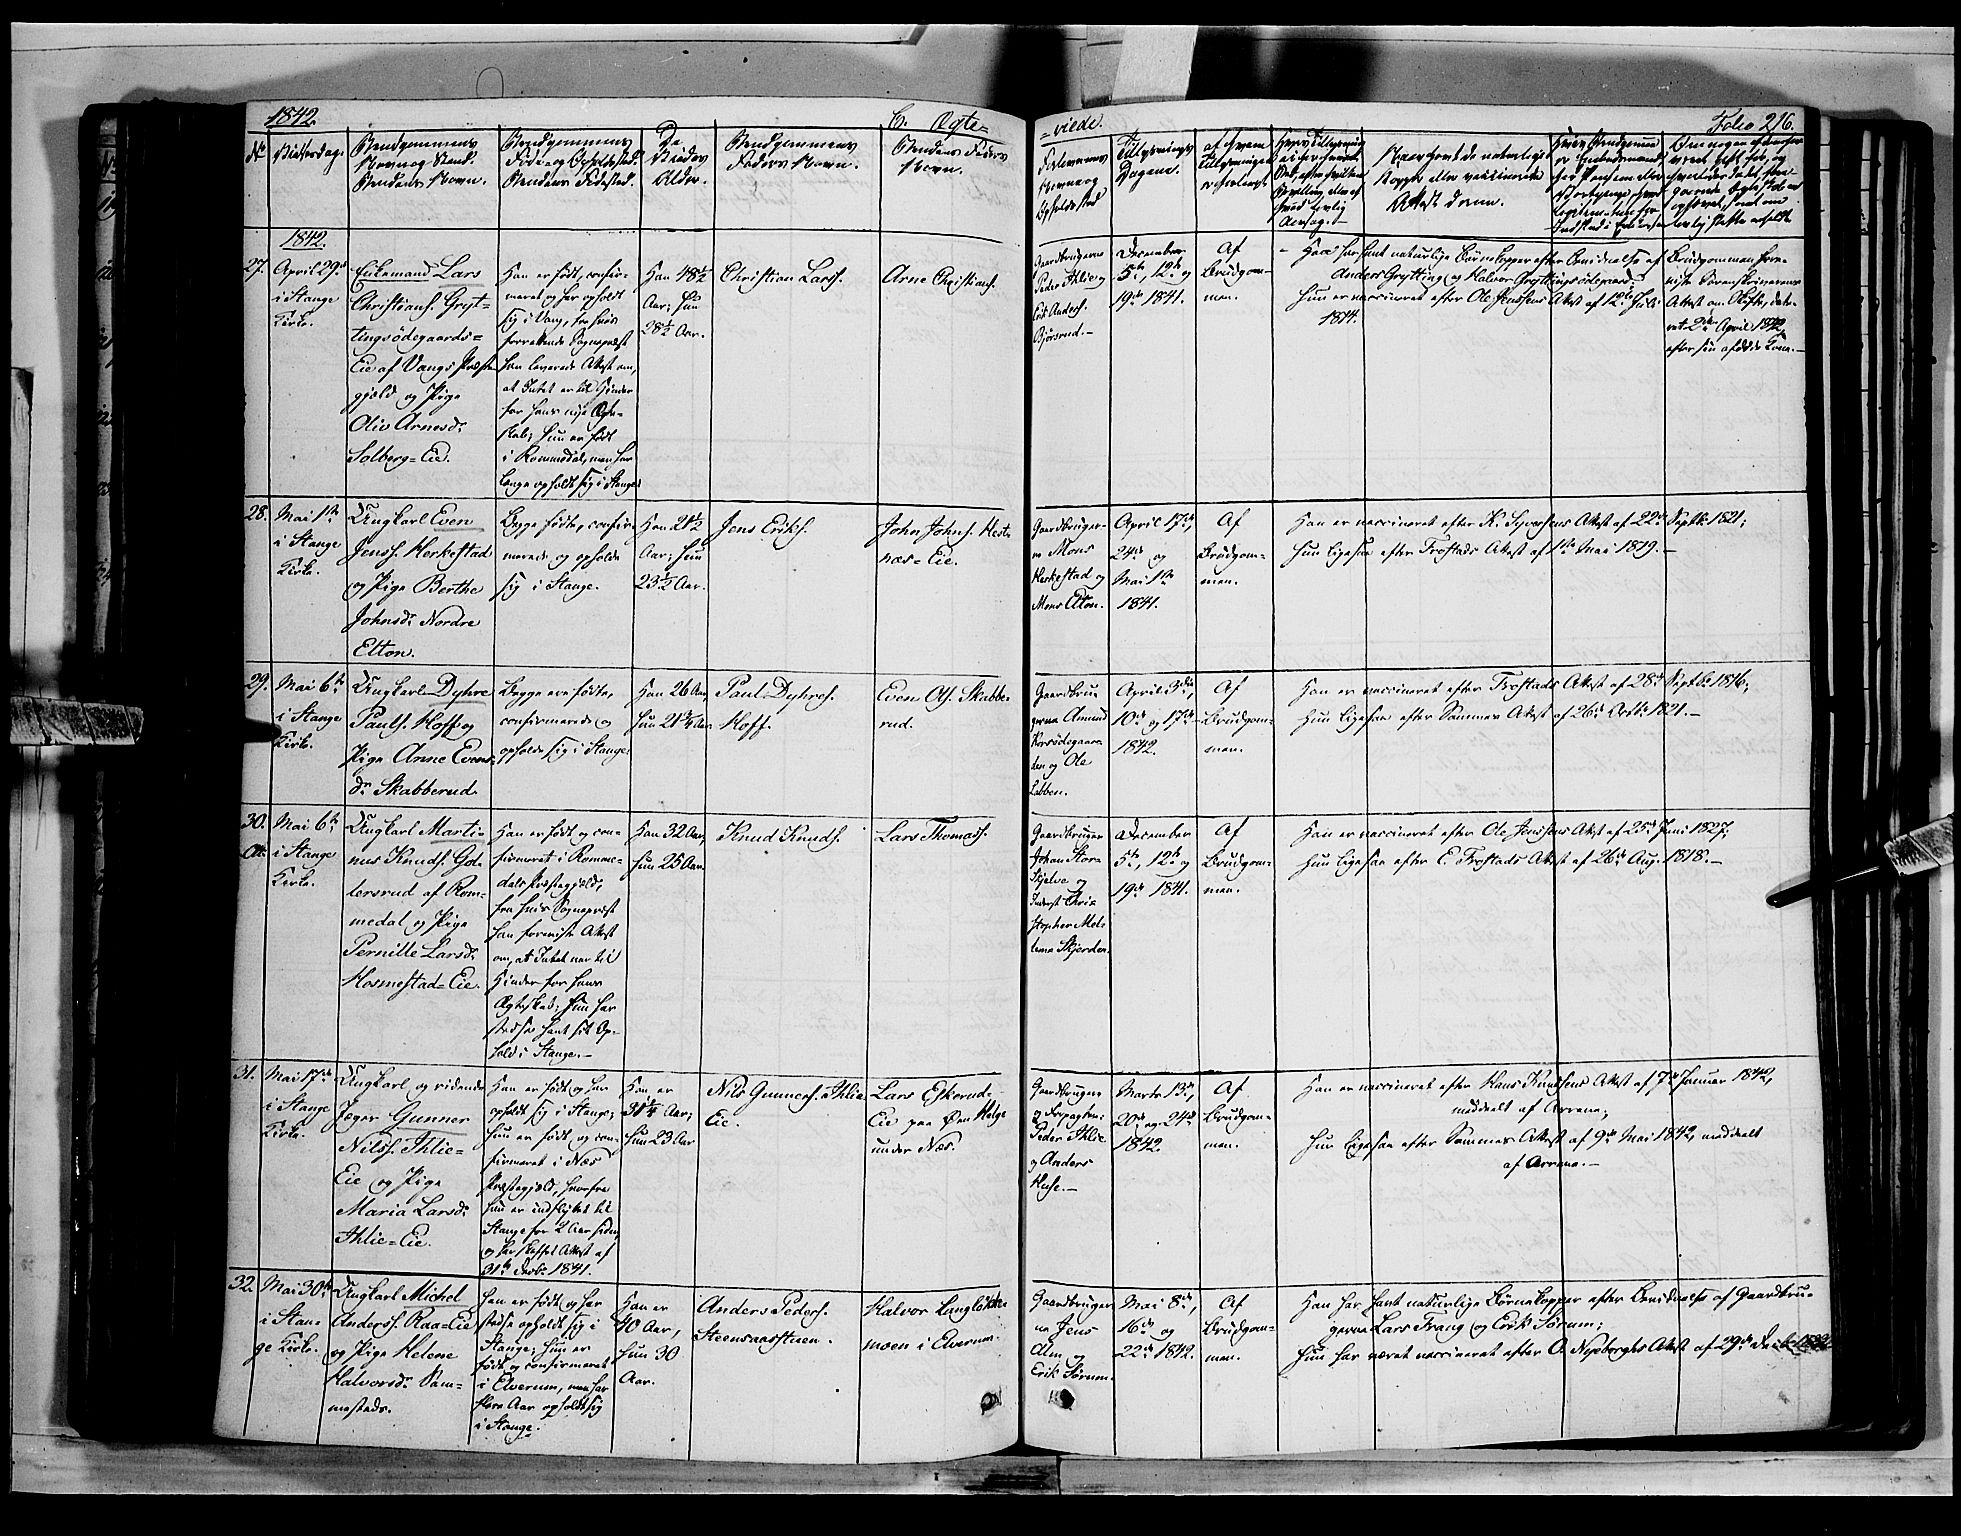 1842.
C. Ægte=
=viede.
Folio 216.
No
Vielsesdag.
Brudgommens
Navn og Stand.
Brudens Navn.
Brudgommens
Føde og Opholdssted.
Brudens Fødested.
De
Viedes
Alder.
Brudgommens
Faders Navn.
Brudens Faders
Navn.
Forlovernes
Navne og
Opholdssted
Tillysnings
Dagene.
Af hvem
Tillysningen
er forlangt
Naar havt de naturlige
Kopper eller vaccinerede
Attest derom.
1842.
27.
April 29de
i Stange
Kirke.
Enkemand Lars
Christians. Gryt-
tingsødegaards=
Eie af Vangs Præste
gjeld og Pige
Oliv Arnesdr
Solberg=Eie.
Han er født, confir-
meret og har opholdt
sig i Vang, fra hvis
Sognepræst
han leverede Attest om,
at Intet er til Hinder
for hans nye Ægte-
skab; hun er født
i Rommedal, men har
længe opholdt sig i Stange.
Han 48½
Aar; hun
28½ Aar.
Christian Lars.
Arne Christians.
Gaardbrugerne
Peder Ihlie og
Erik Anders.
Bjørsrud.-
December
5te, 12te og
19de 1841.
Af
Brudgom-
men.
- Han har havt naturlige Børnekopper efter Bevidnelse af
Anders Grytting og Halvor Gryttingsødegaard;
Hun er vaccineret efter Ole Jenssens Attest af 12te Juli
1814.
Brudgommen fore-
viste Sorenskriverens
Attest om Skifte, date-
ret 2den April 1842,
efter sin afdøde Kone.-
28.
Mai 1ste
i Stange
Kirke.
Ungkarl Even
Jenss. Herkestad
og Pige Berthe
Johnsdr Nordre
Elton.
Begge fødte, confir-
merede og opholde
sig i Stange.
Han 21½
Aar; hun
23½ Aar.
Jens Eriks.
John Johns. Hest-
næs=Eie.
Gaardbruger-
ne Mons
Herkestad og
Mons Elton.
April 17de,
24de og
Mai 1ste
1841.
Af
Brudgom-
men.
Han er vaccineret efter K. Syversens Attest af 22de Septb. 1821;
Hun ligesaa efter Frostads Attest af 1ste Mai 1819.-
29.
Mai 6te
i Stange
Kirke.
Ungkarl Dyhre
Pauls. Hoff og
Pige Anne Evens-
dr Skabberud.
Begge ere fødte,
confirmerede og
opholde sig i Stange.
Han 26 Aar,
hun 21¾ Aar.
Paul Dyhres.
Hoff.
Even Ols. Skabbe-
rud.
Gaardbru-
gerne Amund
Korsødegaar-
den og Ole
Labben.
April 3die,
10de og 17de
1842.
Af
Brudgom-
men.
Han er vaccineret efter Frostads Attest af 28de Septb. 1816;
Hun ligesaa efter Sommes Attest af 26de Octb. 1821.-
30.
a.
Mai 6te
i Stange
Kirke.
Ungkarl Marti-
nus Knuds. Gol-
lersrud af Rom-
medal og Pige
Pernille Larsdr
Hosmestad=Eie.
Han er født og con-
firmeret i Romme-
dals Præstegjeld,
fra hvis Sognepræst
han foreviste Attest
om, at Intet var til
Hinder for hans
Ægteskab; hun har
stedse havt sit Op-
hold i Stange.-
Han 32 Aar,
hun 25 Aar.
Knud Knuds.
Lars Thomass.
Gaardbruger
Johan Stor-
Skjelve og
Inderst Chri-
stopher Mel-
lem Skjerden.
December
5te, 12te og
19de 1841.
Af
Brudgom-
men.
Han er vaccineret efter Ole Jenssens Attest af 25de Juni 1827;
Hun ligesaa efter E. Frostads Attest af 26de Aug. 1818.-
31.
Mai 17de
i Stange
Kirke.
Ungkarl og ridende
Jæger Gunner
Nilss. Ihlie=
Eie og Pige
Maria Larsdr
Ihlie=Eie.
Han er født og har
opholdt sig i Stange;
hun er født og con-
firmeret i Næs
Præstegjeld, hvorfra
hun er indflyttet til
Stange for 2 Aar siden,
og har skaffet Attest af
31te Decbr 1841.
Han er
31¼ Aar;
hun 23 Aar
Nils Gunners. Ihlie
Eie.
Lars Eskerud=
Eie paa Øen Helge
under Næs.
Gaardbruger
og Forpagter
Peder Ihlie
og Anders
Huse.-
Marts 13de,
20de og 24de
1842.
Af
Brudgom-
men.
Han er vaccineret efter Hans Knudsens Attest af 7de Januar 1842,
meddeelt af Arrene;
Hun ligesaa efter Sommes Attest af 9de Mai 1842, meddeelt
af Arrene.-
32.
Mai 30te
i Stan-
ge Kirke.
Ungkarl Michel
Anderss. Raa=Eie
og Pige Helene
Halvorsdr Sam-
mestads.
Han er født og har
stedse opholdt sig i
Stange; hun er
født og confirmeret
i Elverum, men har
flere Aar opholdt sig
i Stange.
Han er
40 Aar,
hun 30
Aar.
Anders Peders.
Steensaasstuen.
Halvor Langbække-
moen i Elverum.
Gaardbruger
ne Jens
Alm og
Erik Sørum.
Mai 8de,
16de og
22de 1842.
Af
Brudgom-
men.
Han har havt naturlige Børnekopper efter Bevidnelse af Gaardbru-
gerne Lars Frang og Erik Sørum;
Hun har været vaccineret efter O. Nyborgs Attest af 29de